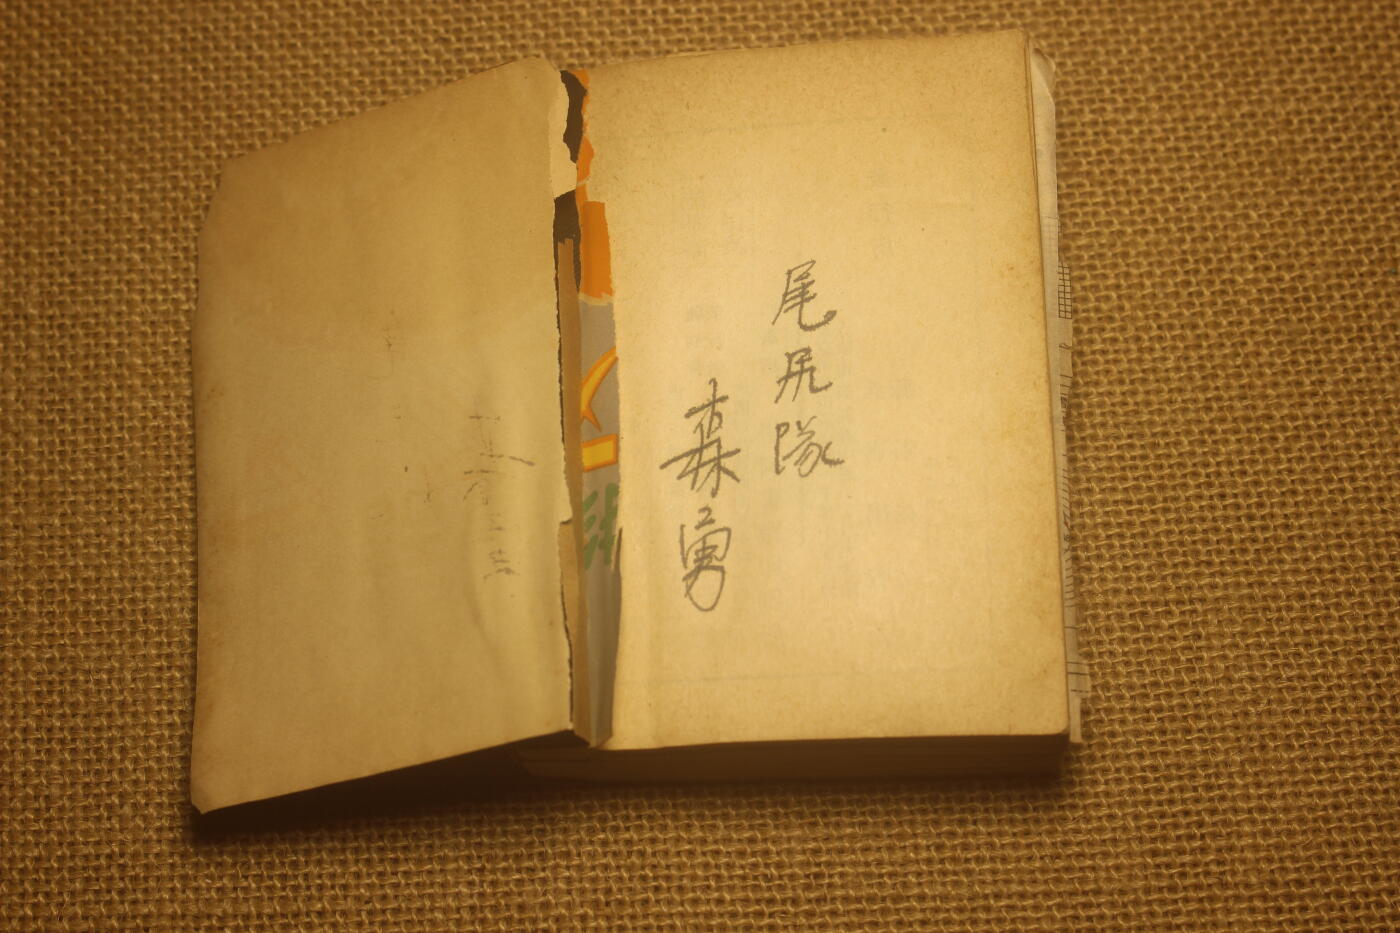 尾尻隊
森勇